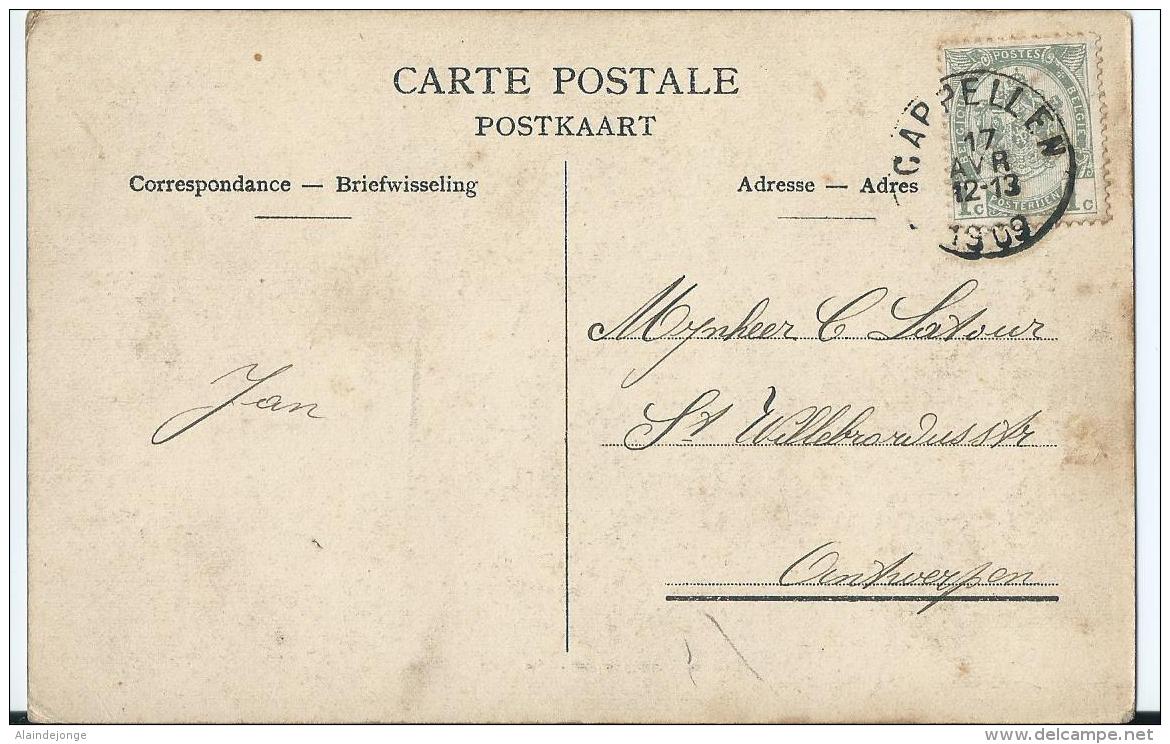 CARTE POSTALE
POSTKAART
Correspondance — Briefwisseling
Adresse — Adres
POSTES
BELGIQUE
BELGIE
POSTERIJEN
1 c
1 c
CAPPELLEN
17
AVR
12-13
1909
Mynheer C Latour
St Willebrordusstr
Antwerpen
Jan
Alaindejonge
www.delcampe.net